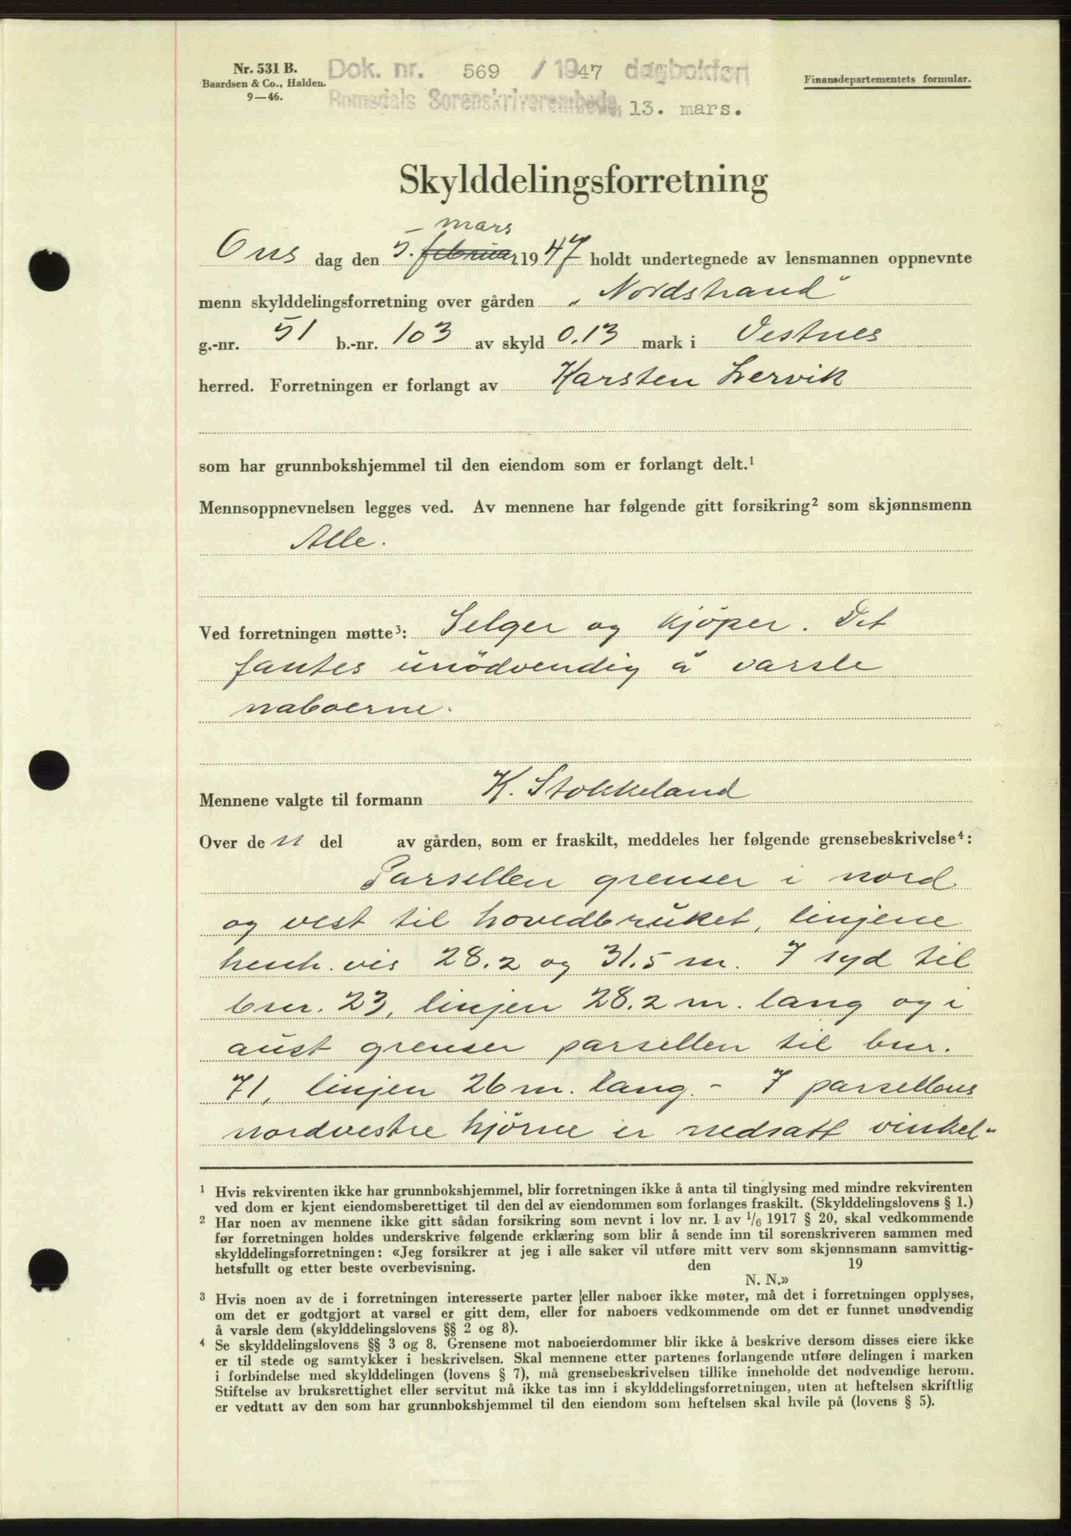 Nr. 531 B.
Baardsen & Co., Halden.
9—46.
Dok. nr. 569 / 1947 dagboken
Romsdals Sorenskriverembede, 13. mars.
Finansdepartementets formular.
Skylddelingsforretning
mars
Ons dag den 5. februar 1947 holdt undertegnede av lensmannen oppnevnte
menn skylddelingsforretning over gården „Nordstrand”
g.-nr. 51 b.-nr. 103 av skyld 0.13 mark i Vestnes
herred. Forretningen er forlangt av Karsten Lervik
som har grunnbokshjemmel til den eiendom som er forlangt delt.¹
Mennsoppnevnelsen legges ved. Av mennene har følgende gitt forsikring² som skjønnsmenn
Alle.
Ved forretningen møtte³: Selger og kjöper. Det
fantes unödvendig å varsle
naboerne.
Mennene valgte til formann K. Stokkeland
Over de n del av gården, som er fraskilt, meddeles her følgende grensebeskrivelse⁴:
Parsellen grenser i nord
og vest til hovedbruket, linjene
henh. vis 28.2 og 31.5 m. I syd til
bnr. 23, linjen 28.2 m. lang og i
aust grenser parsellen til bnr.
71, linjen 26 m. lang. - I parsellens
nordvestre hjörne er nedsatt vinkel-
¹ Hvis rekvirenten ikke har grunnbokshjemmel, blir forretningen ikke å anta til tinglysing med mindre rekvirenten
ved dom er kjent eiendomsberettiget til den del av eiendommen som forlanges fraskilt. (Skylddelingslovens § 1.)
² Har noen av mennene ikke gitt sådan forsikring som nevnt i lov nr. 1 av 1/6 1917 § 20, skal vedkommende
før forretningen holdes underskrive følgende erklæring som blir å sende inn til sorenskriveren sammen med
skylddelingsforretningen: «Jeg forsikrer at jeg i alle saker vil utføre mitt verv som skjønnsmann samvittig-
hetsfullt og etter beste overbevisning. den 19
N. N.»
³ Hvis noen av de i forretningen interesserte parter eller naboer ikke møter, må det i forretningen opplyses,
om det er godtgjort at varsel er gitt dem, eller for naboers vedkommende om det er funnet unødvendig
å varsle dem (skylddelingslovens §§ 2 og 8).
⁴ Se skylddelingslovens §§ 3 og 8. Grensene mot naboeierdommer blir ikke å beskrive dersom disses eiere ikke
er til stede og samtykker i beskrivelsen. Skal mennene etter partenes forlangende utføre delingen i marken
i forbindelse med skylddelingen (lovens § 7), må grensebeskrivelsen tillike inneholde det nødvendige herom.
Stiftelse av bruksrettighet eller servitut må ikke tas inn i skylddelingsforretningen, uten at heftelsen skriftlig
er vedtatt av den som har grunnbokshjemmel til den eiendom som heftelsen skal hvile på (lovens § 5).